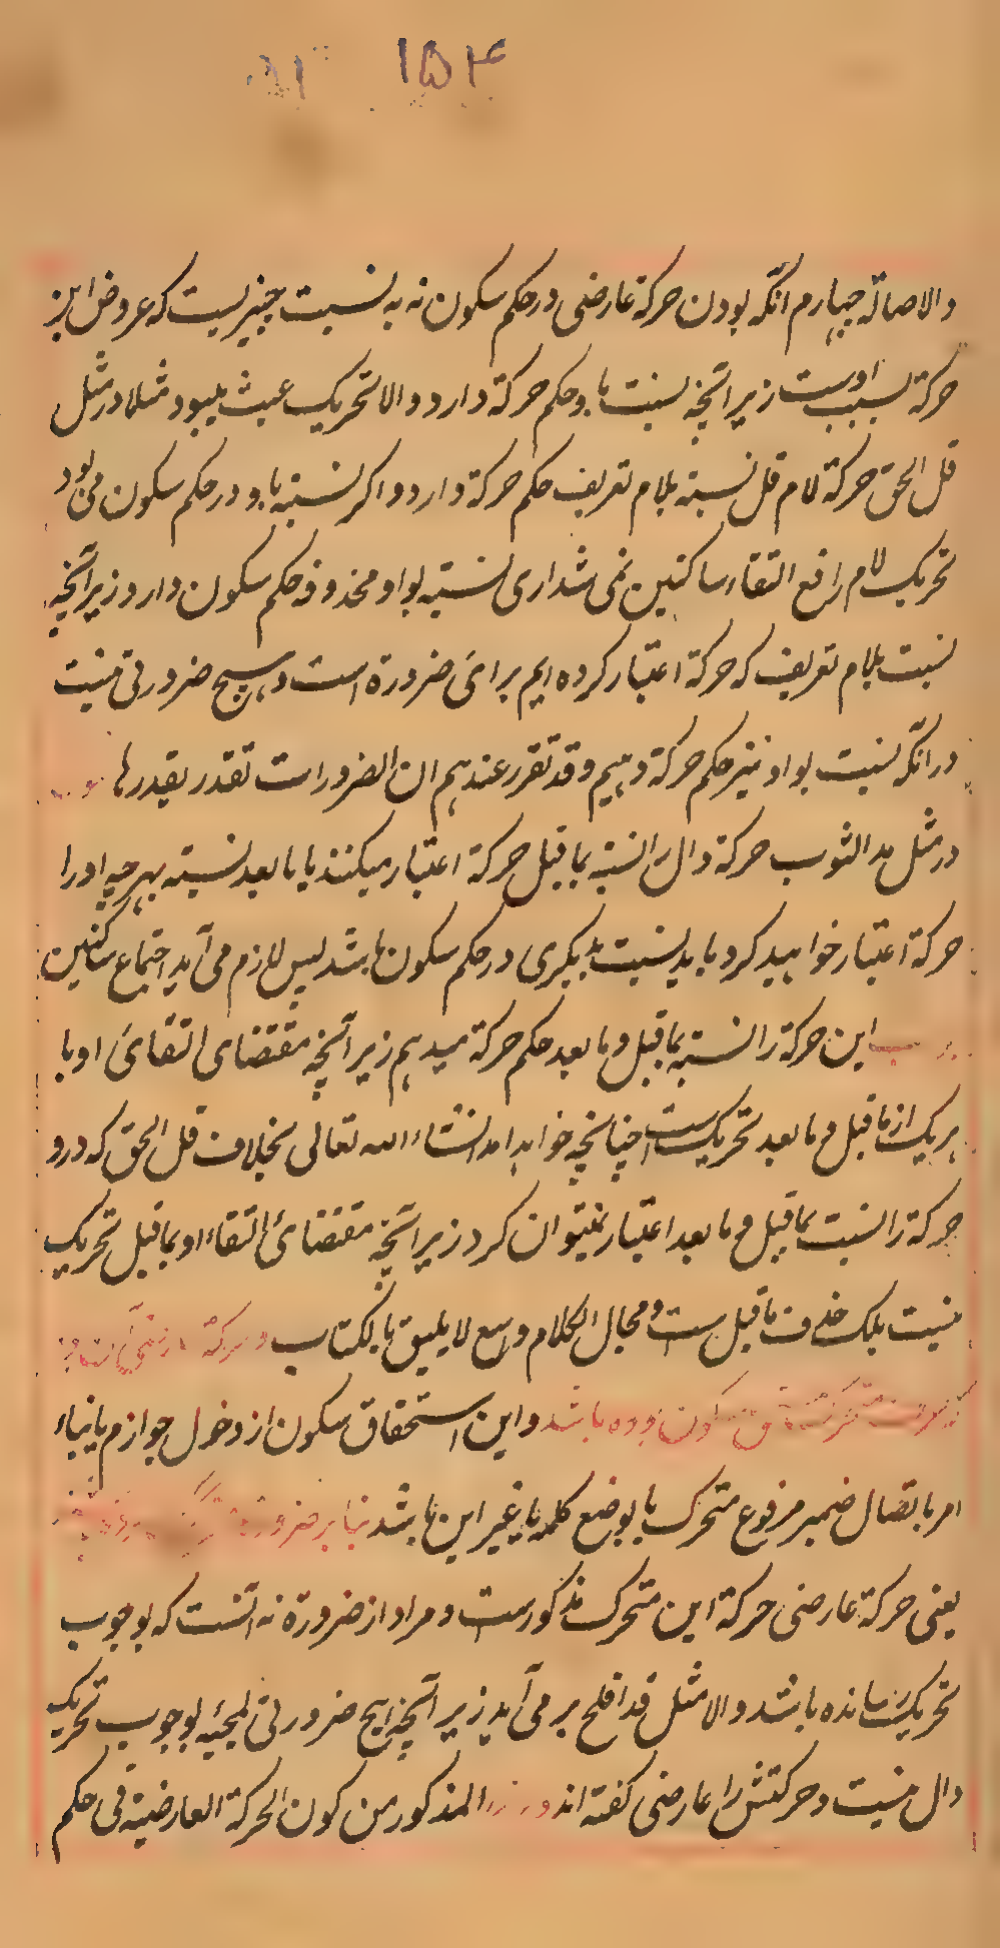 ۱۵۴
والاصالة چهارم آنکه بودن حرکة عارضی در حکم سکون نه به نسبت چیزیست که عروض این
حرکة بسبب اوست زیرا آنچه نسبت باو حکم حرکة دارد والا تحریک عبث میبود مثلا در مثل
قل الحق حرکة لام قل نسبة بلام تعریف حکم حرکة دارد و اکر نسبة باو در حکم سکون می بود
تحریک لام رافع التقاء ساکنین نمی شد اری نسبة بواو محذوفه حکم سکون دارد زیرا آنچه
نسبت بلام تعریف که حرکة اعتبار کرده ایم برای ضرورة است و هیچ ضرورتی نیست
در آنکه نسبت بواو نیز حکم حرکة دهیم وقد تقرر عندهم ان الضرورات تقدر بقدرها
در مثل مد الثوب حرکة دال را نسبة بماقبل حرکة اعتبار میکنند یا بمابعد نسبة بهرچه او را
حرکة اعتبار خواهید کرد باید نسبت بدیکری در حکم سکون باشد پس لازم می آید اجتماع ساکنین
این حرکة را نسبة بماقبل و مابعد حکم حرکة میدهیم زیرا آنچه مقتضای التقای او با
هریک از ماقبل و مابعد تحریکست چنانچه خواهد امد انشاء الله تعالی بخلاف قل الحق که درو
حرکة را نسبت بماقبل و مابعد اعتبار نمیتوان کرد زیرا آنچه مقتضای التقاء او بماقبل تحریک
نیست بلک حذف ماقبل ست و مجال الکلام واسع لا یلیق بالکتاب
سکون بوده باشد و این استحقاق سکون از دخول جوازم یا بناء
امر یا اتصال ضمیر مرفوع متحرک یا بوضع کلمه یا غیر این باشد بنا بر ضرورة
یعنی حرکة عارضی حرکة این متحرک مذکورست و مراد از ضرورة نه آنست که بوجوب
تحریک رسانده باشد والا مثل قد افلح بر می آید زیرا آنچه هیچ ضرورتی ملجئه بوجوب تحریک
دال نیست و حرکتش را عارضی کفته اند المذکور من کون الحرکة العارضیة فی حکم